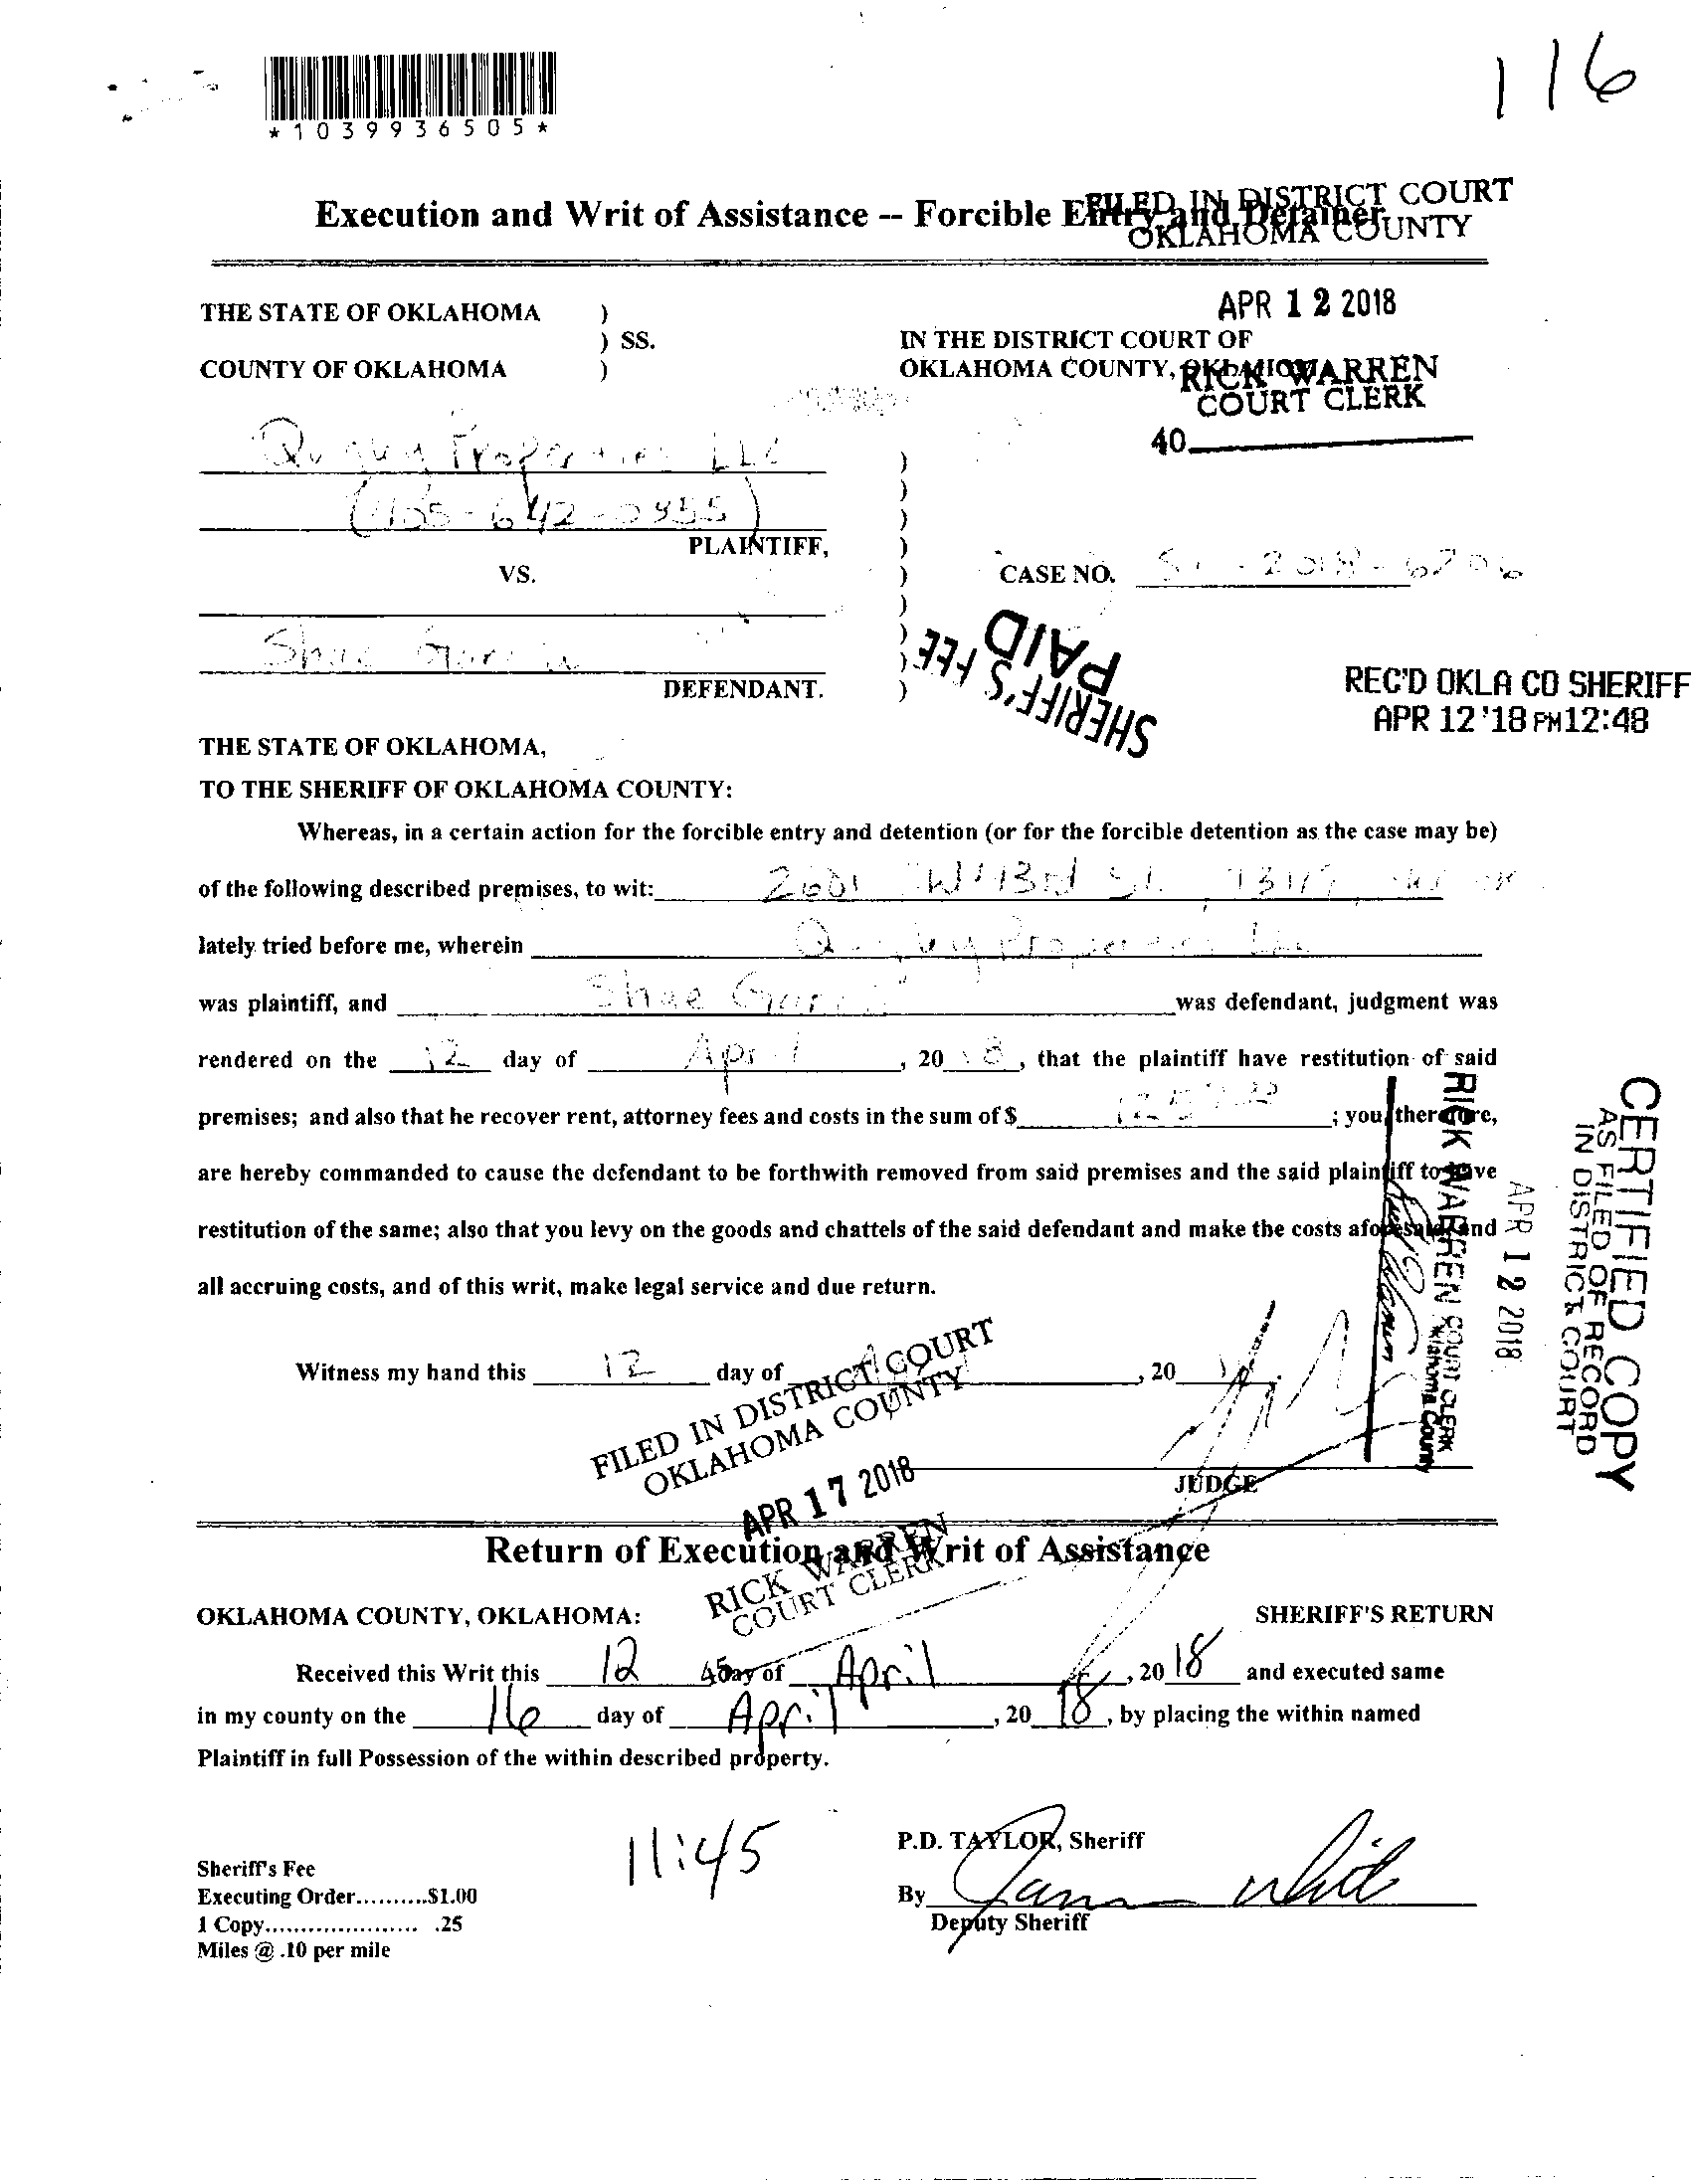 116
*1039936505*
Execution and Writ of Assistance -- Forcible Entry and Detainer
FILED IN DISTRICT COURT
OKLAHOMA COUNTY
APR 12 2018
RICK WARREN
COURT CLERK
40
THE STATE OF OKLAHOMA )
) SS.
COUNTY OF OKLAHOMA )
IN THE DISTRICT COURT OF
OKLAHOMA COUNTY,
Properties LLC
PLAINTIFF,
VS.
CASE NO.
Shae
DEFENDANT.
SHERIFF'S FEE
PAID
REC'D OKLA CO SHERIFF
APR 12 '18 PM 12:48
THE STATE OF OKLAHOMA,
TO THE SHERIFF OF OKLAHOMA COUNTY:
Whereas, in a certain action for the forcible entry and detention (or for the forcible detention as the case may be)
of the following described premises, to wit:
lately tried before me, wherein Properties
was plaintiff, and Shae was defendant, judgment was
rendered on the 12 day of April, 2018, that the plaintiff have restitution of said
premises; and also that he recover rent, attorney fees and costs in the sum of $ ; you therefore,
are hereby commanded to cause the defendant to be forthwith removed from said premises and the said plaintiff to have
restitution of the same; also that you levy on the goods and chattels of the said defendant and make the costs aforesaid and
all accruing costs, and of this writ, make legal service and due return.
Witness my hand this 12 day of , 20
JUDGE
CERTIFIED COPY
AS FILED OF RECORD
IN DISTRICT COURT
APR 12 2018
RICK WARREN COURT CLERK
Oklahoma County
FILED IN DISTRICT COURT
OKLAHOMA COUNTY
APR 17 2018
RICK WARREN
COURT CLERK
45
Return of Execution and Writ of Assistance
OKLAHOMA COUNTY, OKLAHOMA:
SHERIFF'S RETURN
Received this Writ this 12 day of April, 2018 and executed same
in my county on the 16 day of April, 2018, by placing the within named
Plaintiff in full Possession of the within described property.
11:45
P.D. TAYLOR, Sheriff
Sheriff's Fee
Executing Order..........$1.00
1 Copy..................... .25
Miles @ .10 per mile
By
Deputy Sheriff